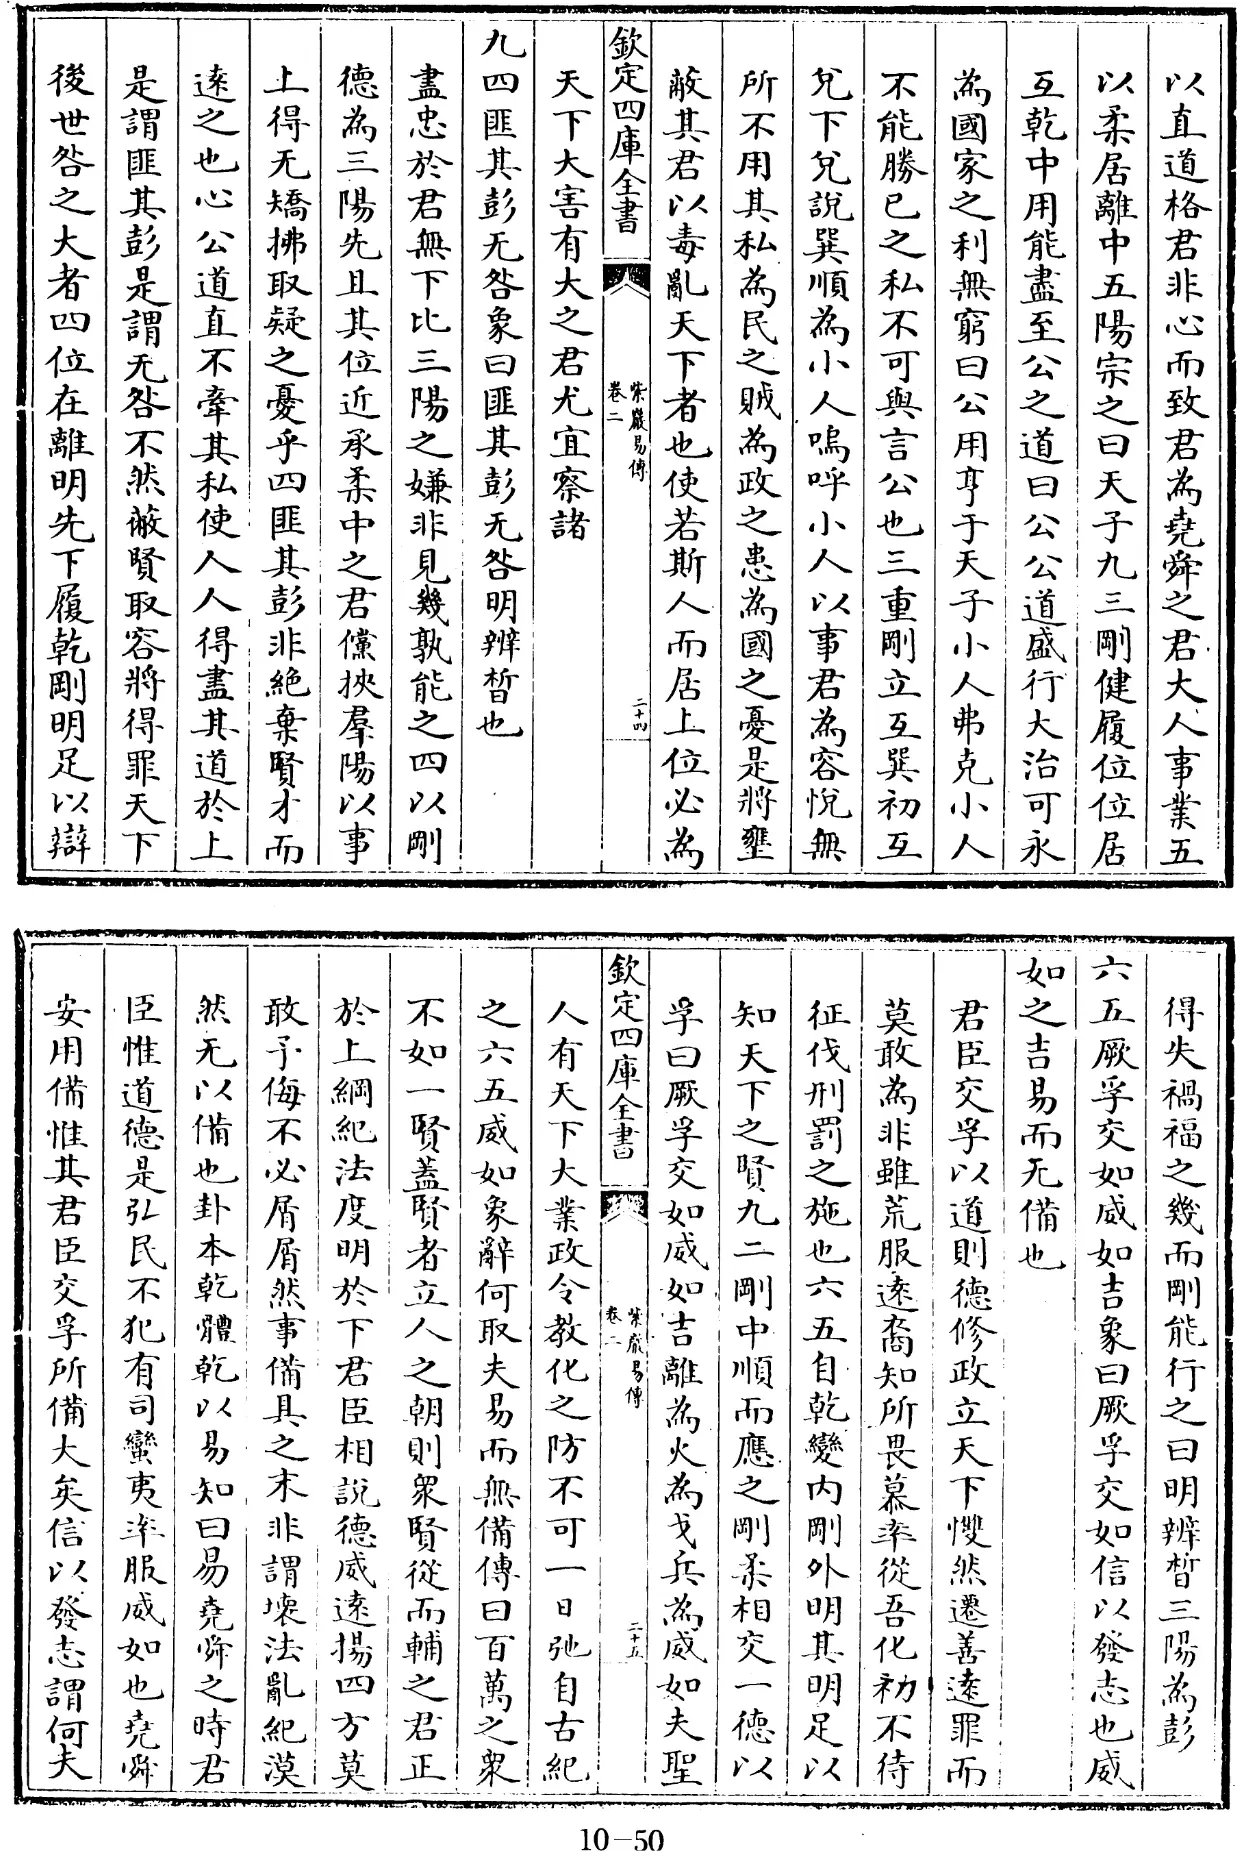 以直道格君非心而致君為堯舜之君大人事業五
以柔居離中五陽宗之曰天子九三剛健履位位居
互乾中用能盡至公之道曰公公道盛行大治可永
為國家之利無窮曰公用亨于天子小人弗克小人
不能勝已之私不可與言公也三重剛立互巽初互
兌下兌說巽順為小人嗚呼小人以事君為容悅無
所不用其私為民之賊為政之患為國之憂是將壅
蔽其君以毒亂天下者也使若斯人而居上位必為
欽定四庫全書
紫巖易傳
卷二
二十四
天下大害有大之君尤宜察諸
九四匪其彭无咎象曰匪其彭无咎明辨晢也
盡忠於君無下比三陽之嫌非見幾孰能之四以剛
德為三陽先且其位近承柔中之君儻挾羣陽以事
上得无矯拂取疑之憂乎四匪其彭非絕棄賢才而
遠之也心公道直不牽其私使人人得盡其道於上
是謂匪其彭是謂无咎不然蔽賢取容將得罪天下
後世咎之大者四位在離明先下履乾剛明足以辯
得失禍福之幾而剛能行之曰明辨晢三陽為彭
六五厥孚交如威如吉象曰厥孚交如信以發志也威
如之吉易而无備也
君臣交孚以道則德修政立天下慢然遷善遠罪而
莫敢為非雖荒服遠裔知所畏慕率從吾化初不待
征伐刑罰之施也六五自乾變內剛外明其明足以
知天下之賢九二剛中順而應之剛柔相交一德以
孚曰厥孚交如威如吉離為火為戈兵為威如夫聖
欽定四庫全書
紫巖易傳
卷二
二十五
人有天下大業政令教化之防不可一日弛自古紀
之六五威如象辭何取夫易而無備傳曰百萬之衆
不如一賢蓋賢者立人之朝則衆賢從而輔之君正
於上綱紀法度明於下君臣相說德威遠揚四方莫
敢予侮不必屑屑然事備具之末非謂壞法亂紀漠
然无以備也卦本乾體乾以易知曰易堯舜之時君
臣惟道德是弘民不犯有司蠻夷率服威如也堯舜
安用備惟其君臣交孚所備大矣信以發志謂何夫
10-50